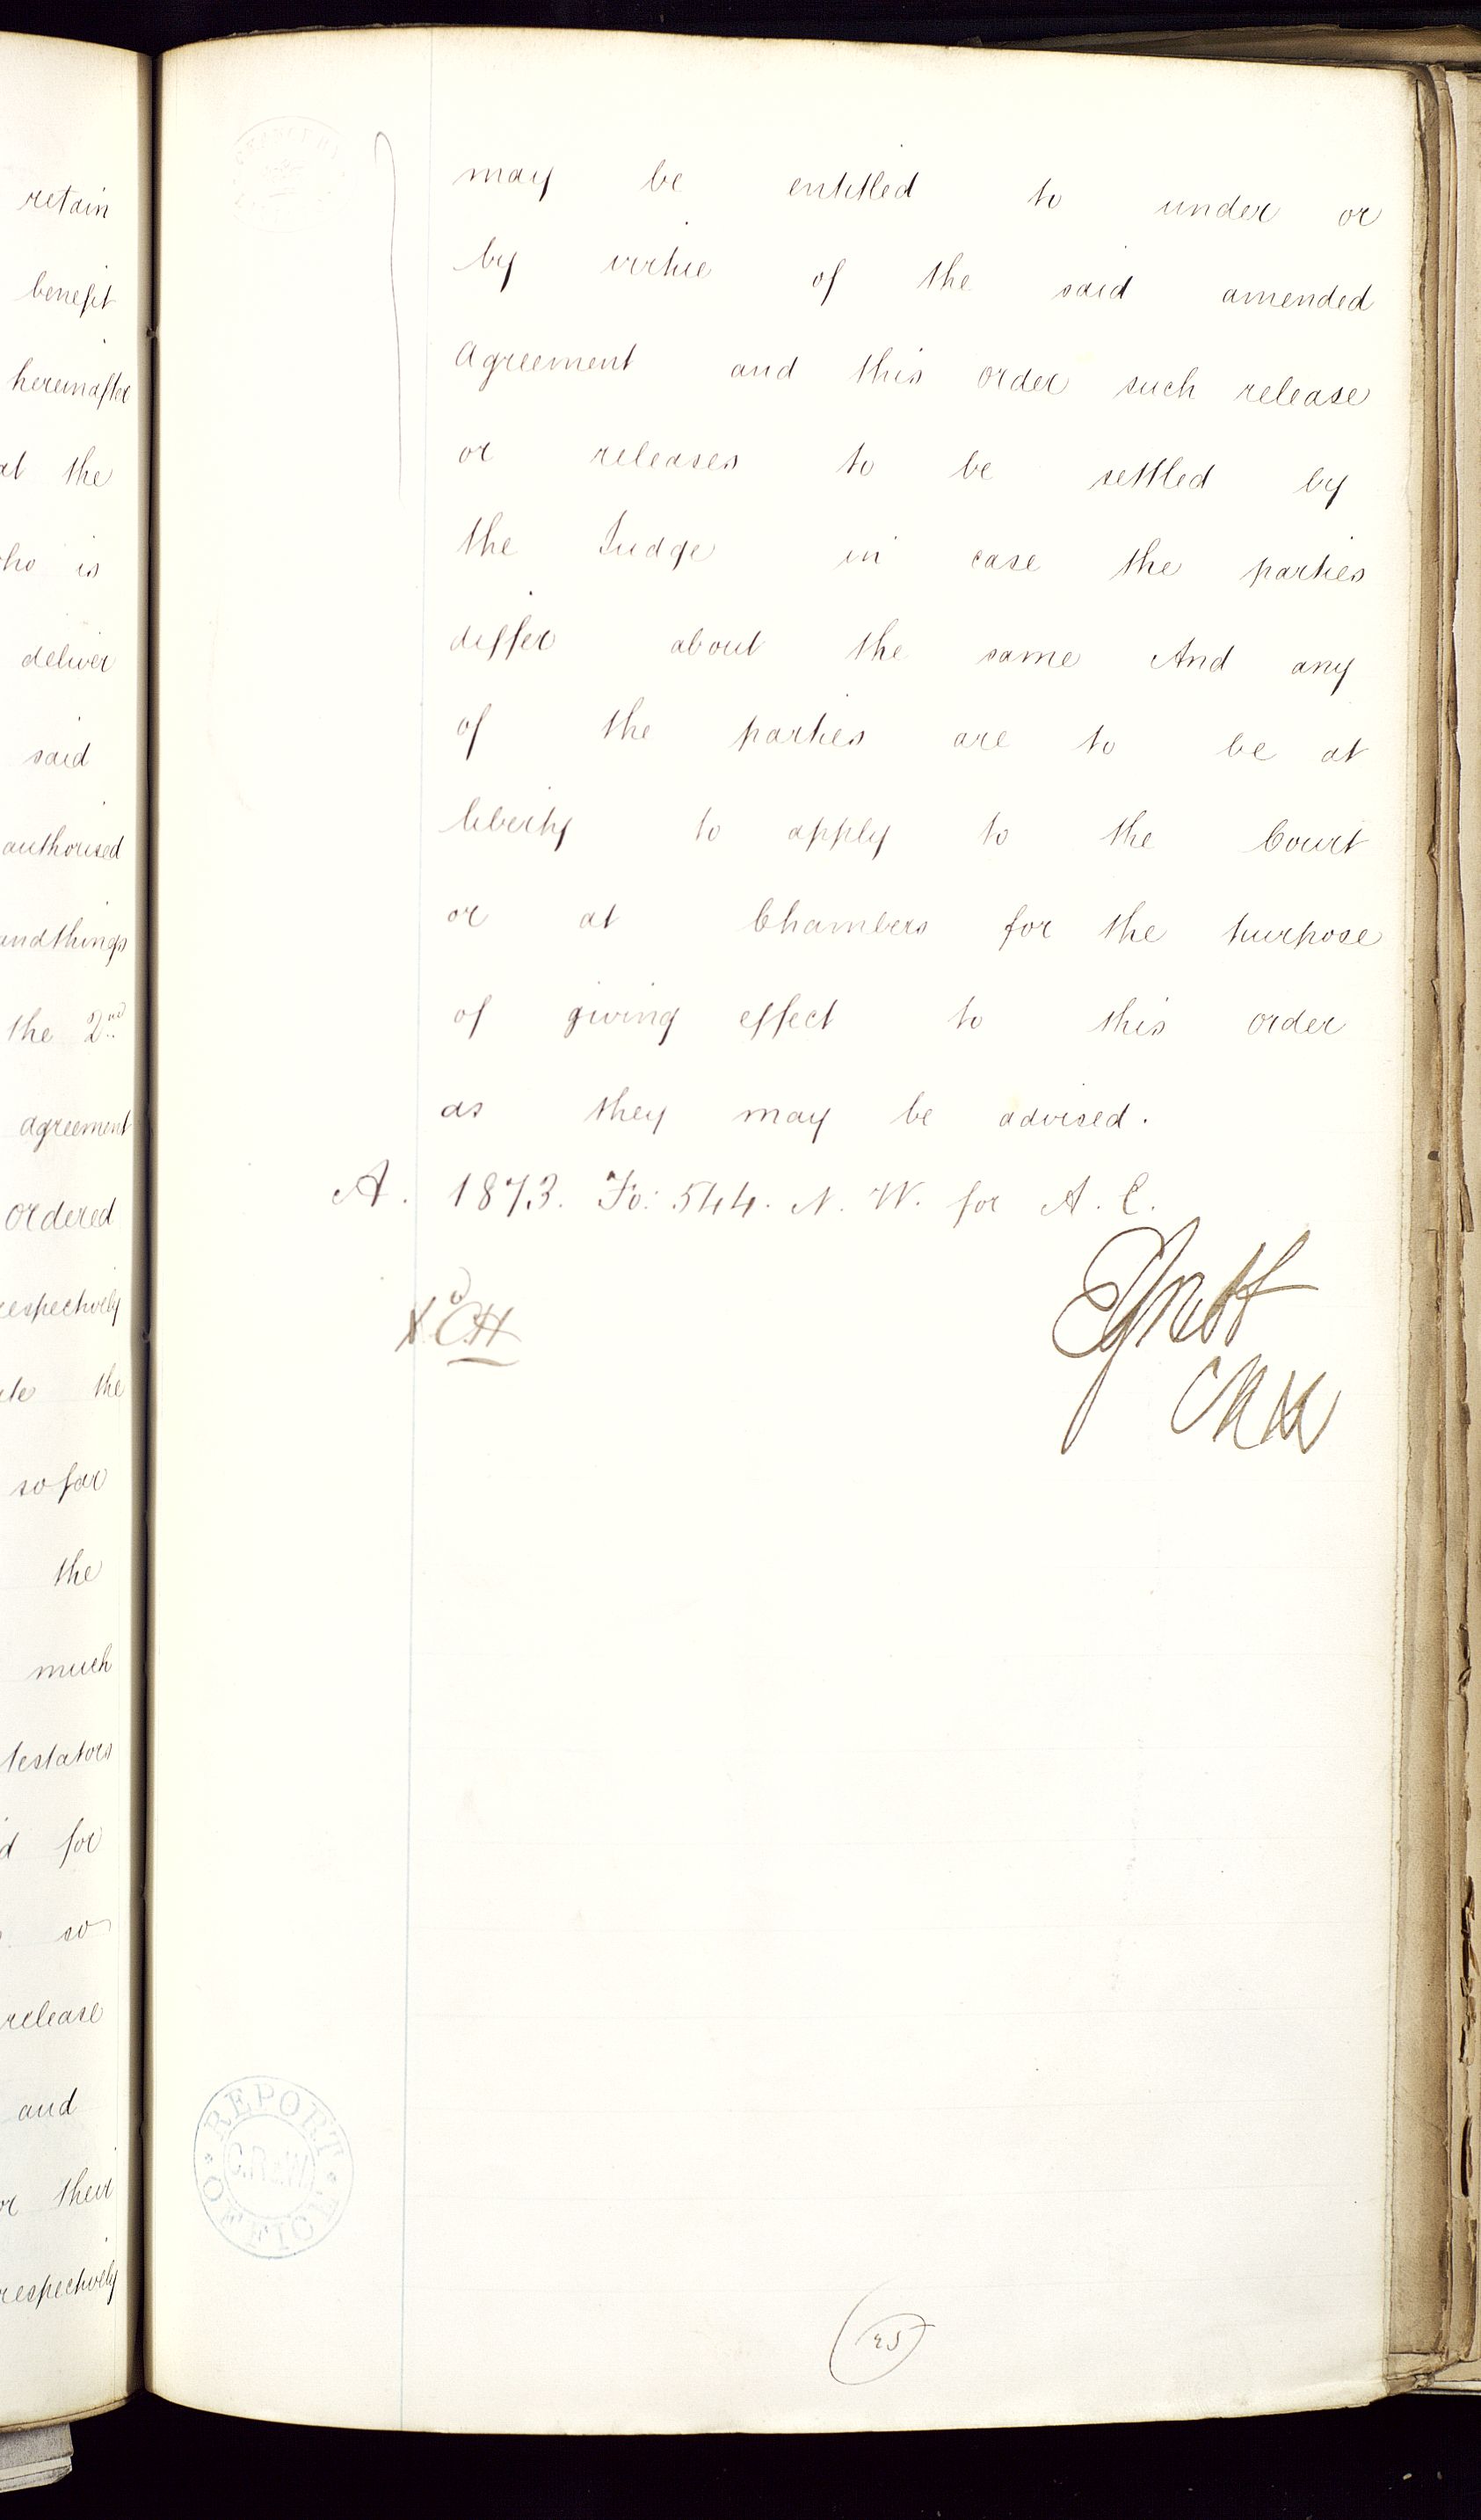 retain
benefit
hereinafter
at the
who is
deliver
said
authorised
and things
the 2nd
agreement
ordered
respectively
the
so far
the
much
testators
for
so
release
and
or their
respectively
may be entitled to under or
by virtue of the said amended
Agreement and this order such release
or releases to be settled by
the Judge in case the parties
differ about the same And any
of the parties are to be at
liberty to apply to the Court
or at Chambers for the purpose
of giving effect to this order
as they may be advised.
A. 1873. Fo: 544. N. W. for A. C.
REPORT OFFICE
25